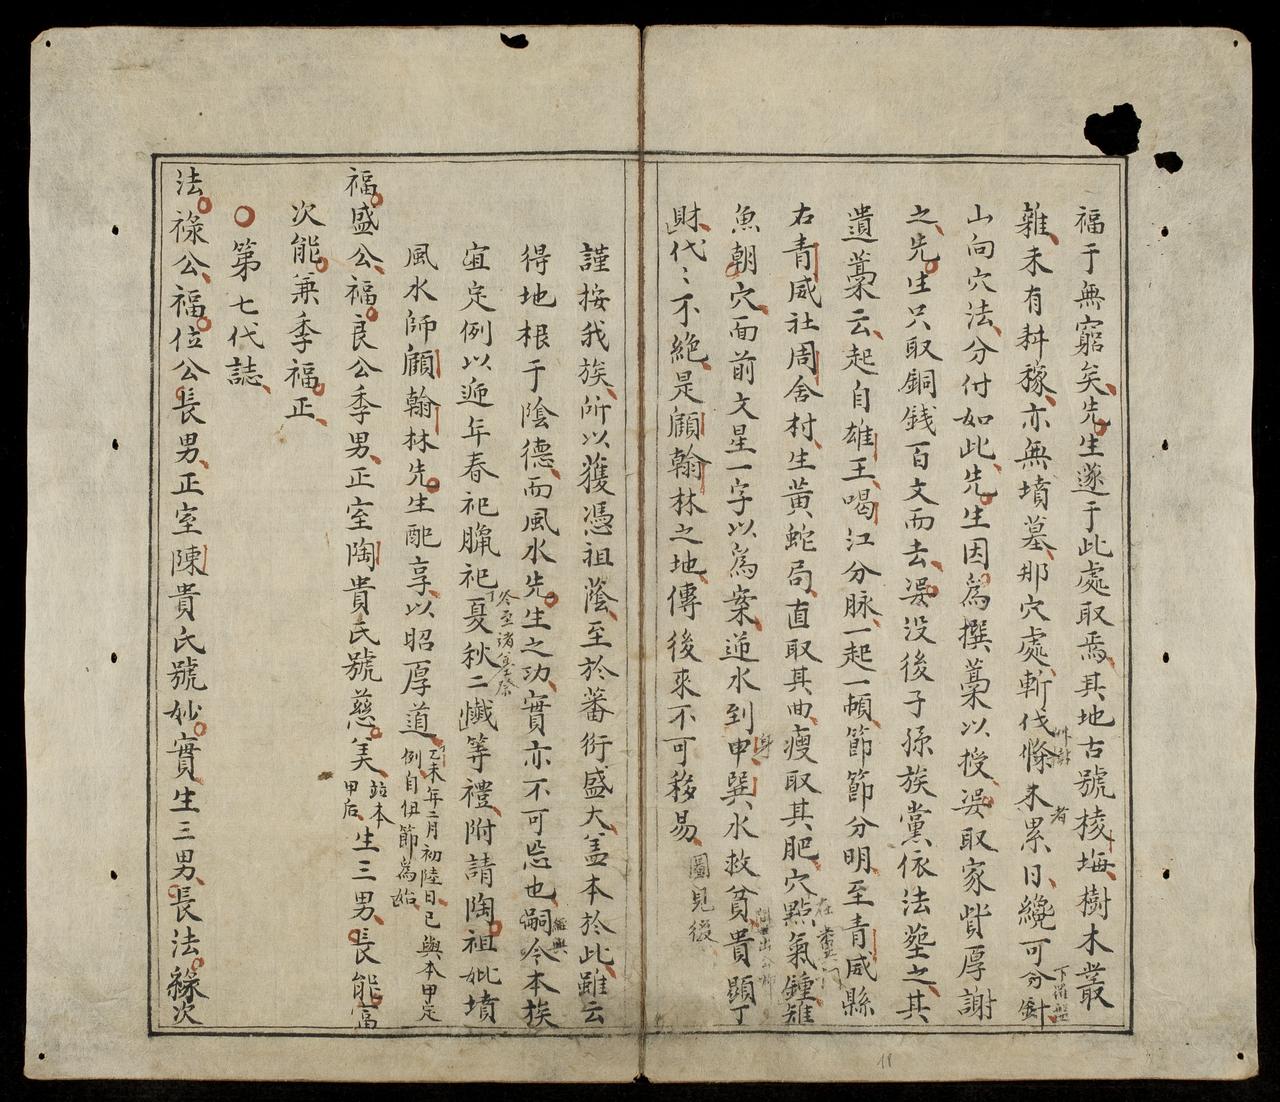 福于無窮矣先生遂于此處取焉其地古號棱塸樹木叢
雜未有耕稼亦無墳墓那穴處斬伐條木累日纔可分針
艸樹
者
下羅盤
山向穴法分付如此先生因為撰藁以授娱取家貲厚謝
之先生只取銅銭百文而去娱没後子孫族黨依法塟之其
遺藁云起自雄王喝江分脉一起一頓節節分明至青威縣
右青威社周舍村生黄蛇局直取其曲瘦取其肥穴點氣鍾雉
在
魚朝穴面前文星一字以為案逆水到申巽水救貧貴顯丁
身
財代〻不絶是顧翰林之地傳後來不可移易
圖見後
謹按我族所以獲憑祖蔭至於蕃衍盛大盖本於此雖云
得地根于陰德而風水先生之功實亦不可忘也嗣今本族
宜定例以逓年春祀臘祀夏秋二懺等禮附請陶祖妣墳
風水師顧翰林先生配享以昭厚道
乙未年二月初陸日已與本甲定
例自伹節為始
福盛公福良公季男正室陶貴氏號慈美
並本
甲后
生三男長能富
次能兼季福正
第七代誌
法祿公福位公長男正室陳貴氏號妙實生三男長法綠次